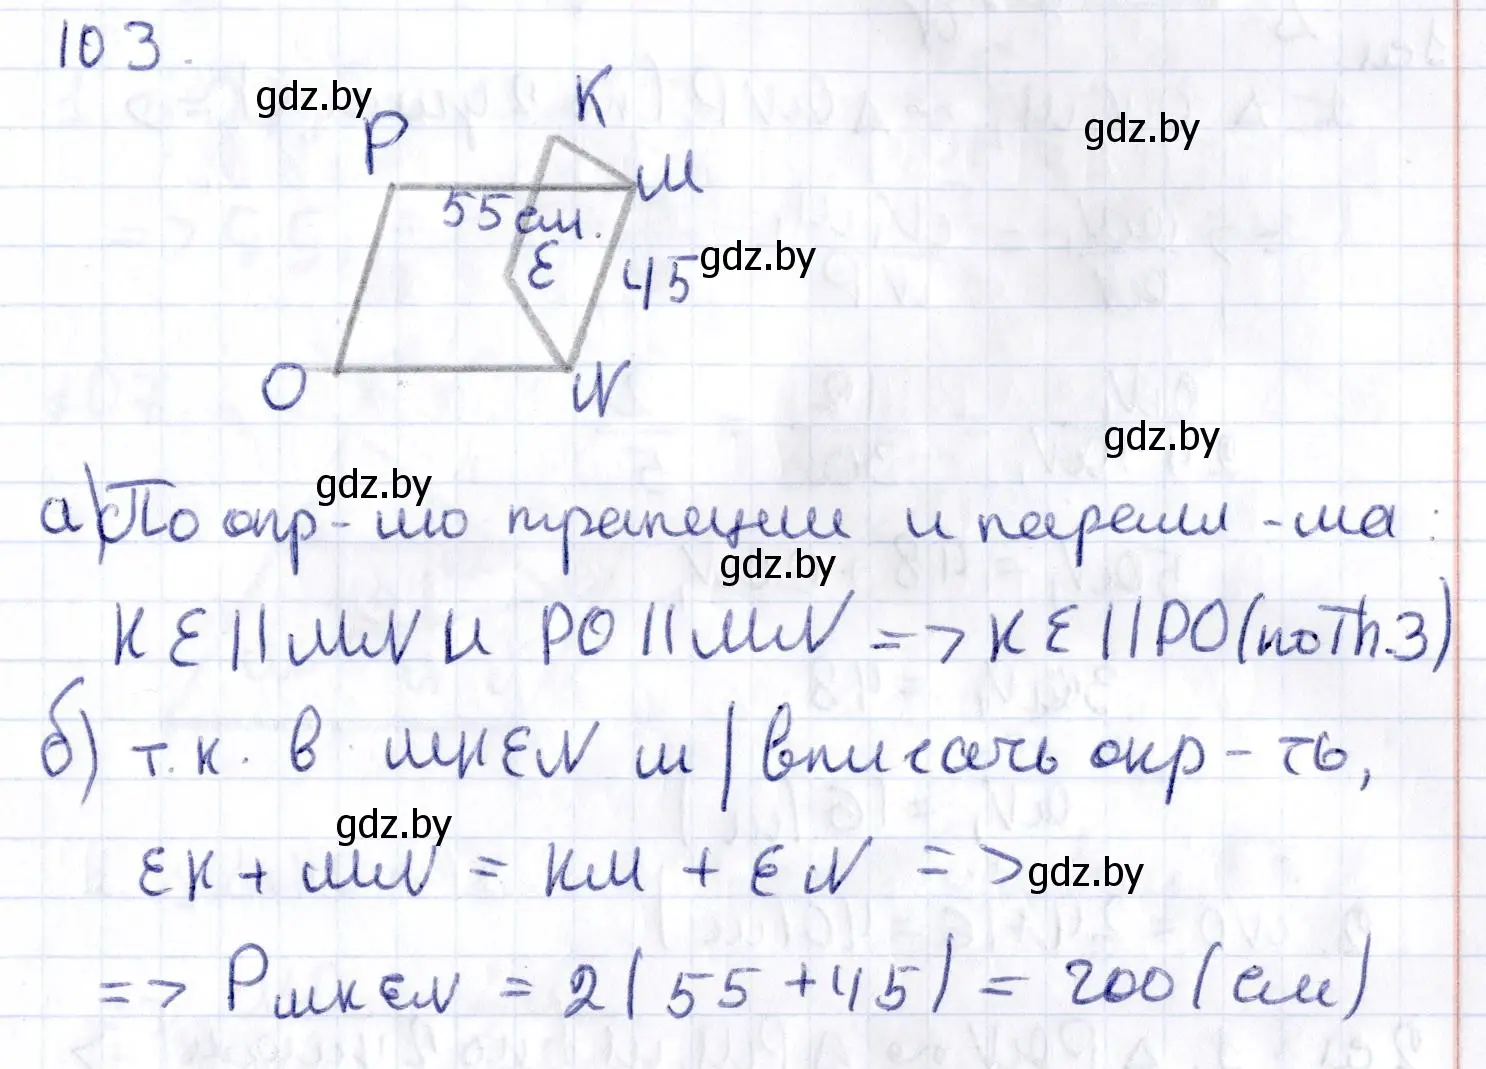 103.
gdz.by
K
P
gdz.by
M
55 см.
E
45
gdz.by
O
N
gdz.by
gdz.by
а) По опр-ию трапеции и паралл-ма:
gdz.by
KE||MN и PO||MN => KE||PO (по Th.3)
б) т.к. в MKEN м/вписать окр-ть,
gdz.by
EK + MN = KM + EN =>
gdz.by
=> P MKEN = 2(55+45) = 200 (см)